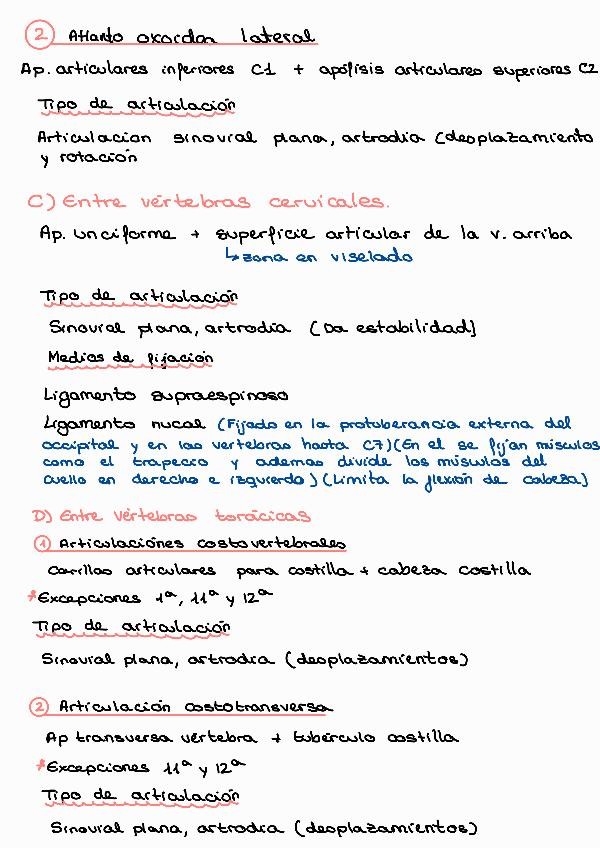 2 Atlanto axoidea lateral
Ap. articulares inferiores C1 + apófisis articulares superiores C2
Tipo de articulación
Articulacion sinovial plana, artrodia (desplazamiento
y rotación
C) Entre vértebras cervicales.
Ap. unciforme + superficie articular de la v. arriba
↳ zona en viselado
Tipo de articulación
Sinovial plana, artrodia (Da estabilidad)
Medios de fijación
Ligamento supraespinoso
Ligamento nucal (Fijado en la protuberancia externa del
occipital y en las vertebras hasta C7) (En el se fijan músculos
como el trapecio y ademas divide los músulos del
cuello en derecho e izquierdo) (Limita la flexión de cabeza)
D) Entre vértebras torácicas
1 Articulaciónes costovertebrales
Carillas articulares para costilla + cabeza costilla
*Excepciones 1ª, 11ª y 12ª
Tipo de articulación
Sinovial plana, artrodia (desplazamientos)
2 Articulación costotransversa
Ap transversa vértebra + tubérculo costilla
*Excepciones 11ª y 12ª
Tipo de articulación
Sinovial plana, artrodia (desplazamientos)